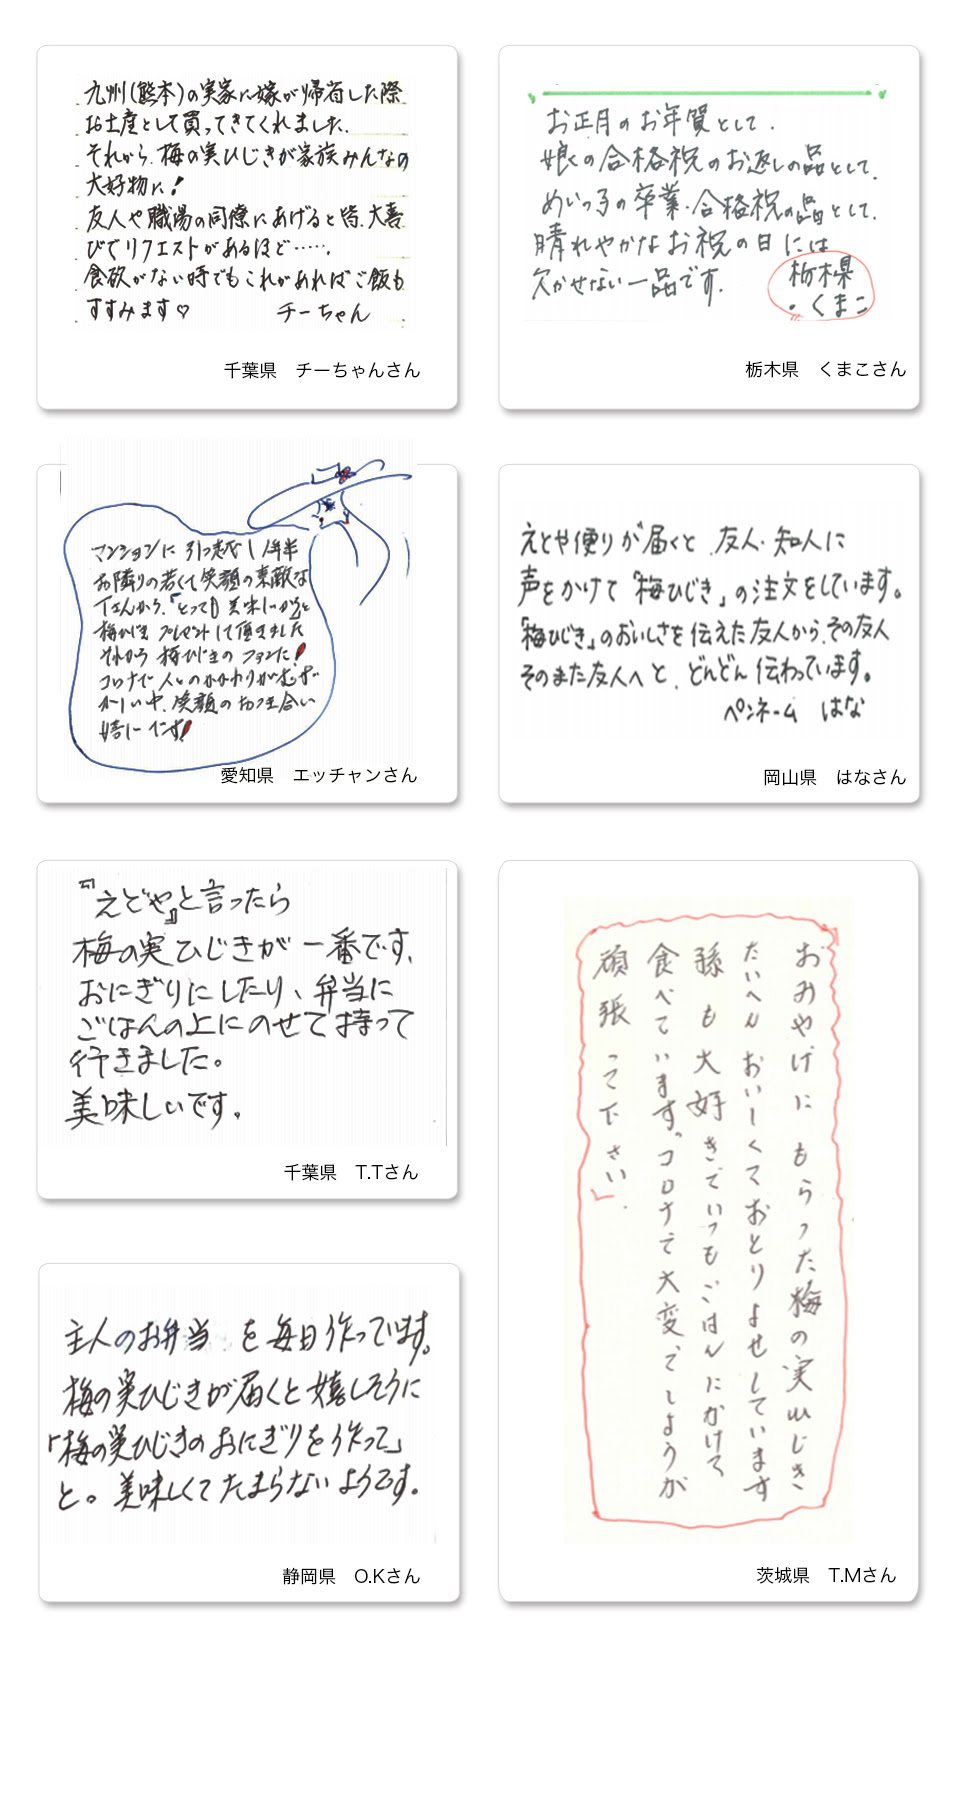 九州(熊本)の実家に嫁が帰省した際
お土産として買ってきてくれました。
それから、梅の実ひじきが家族みんなの
大好物に!
友人や職場の同僚にあげると皆、大喜
びでリクエストがあるほど……。
食欲がない時でもこれがあればご飯も
すすみます♡ チーちゃん
千葉県 チーちゃんさん
お正月のお年賀として、
娘の合格祝のお返しの品として、
めいっ子の卒業、合格祝の品として、
晴れやかなお祝の日には
欠かせない一品です。
栃木県
・くまこ
栃木県 くまこさん
マンションに引っ越し1年半
お隣りの若くて笑顔の素敵な
Tさんから、「とっても美味しいからと
梅ひじき プレゼントして頂きました
それから 梅ひじきのファンに!
コロナで人とのかかわりがむずか
しい中、笑顔のお付き合い
嬉しいです!
愛知県 エッチャンさん
えとや便りが届くと、友人・知人に
声をかけて「梅ひじき」の注文をしています。
「梅ひじき」のおいしさを伝えた友人から、その友人
そのまた友人へと、どんどん伝わっています。
ペンネーム はな
岡山県 はなさん
『えどや』と言ったら
梅の実ひじきが一番です、
おにぎりにしたり、弁当に
ごはんの上にのせて持って
行きました。
美味しいです。
千葉県 T.Tさん
おみやげにもらった梅の実ひじき
たいへんおいしくておとりよせしています
孫も大好きでいつもごはんにかけて
食べています。コロナで大変でしょうが
頑張って下さい」
茨城県 T.Mさん
主人のお弁当 を毎日作っています。
梅の実ひじきが届くと嬉しそうに
「梅の実ひじきのおにぎりを作って」
と。美味しくてたまらないようです。
静岡県 O.Kさん